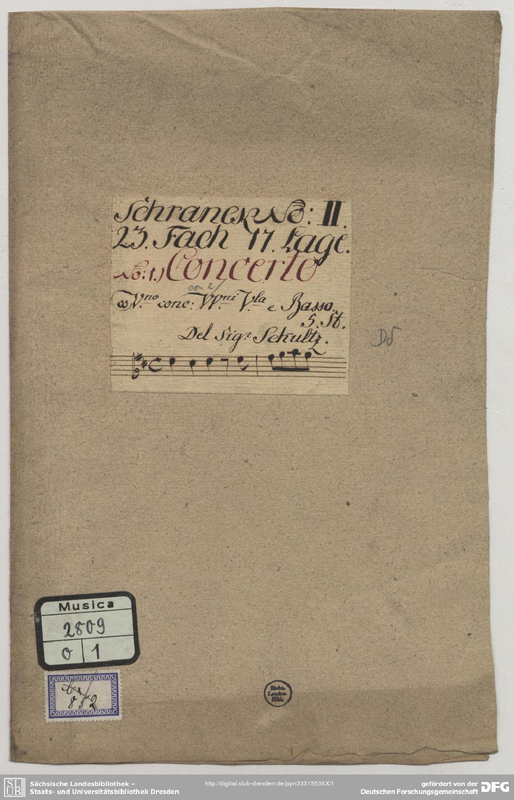 Schranck No: II.
23. Fach 17. Lage.
No: 1.) Concerto
co V.no conc: VV.ni V.la e Basso.
5. St.
Del Sig.r Schultz.
D5
Musica
2809
O 1
852
Sächs.
Landes-
Bibl.
Sächsische Landesbibliothek –
Staats- und Universitätsbibliothek Dresden
http://digital.slub-dresden.de/ppn33315536X/1
gefördert von der
Deutschen Forschungsgemeinschaft
DFG